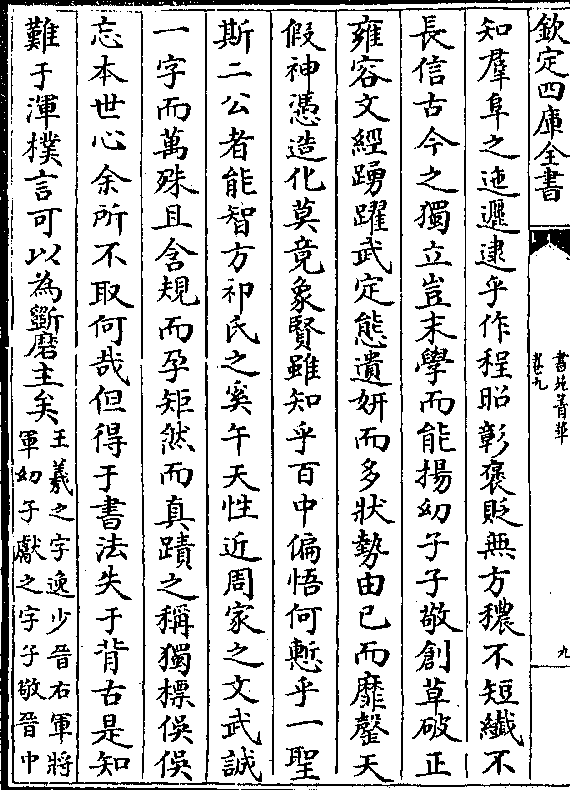 欽定四庫全書
書苑菁華
卷九
九
知羣阜之迤邐逮乎作程昭彰褒貶無方穠不短纖不
長信古今之獨立豈末學而能揚幼子子敬創草破正
雍容文經踴躍武定態遺妍而多狀勢由已而靡罄天
假神憑造化莫竟象賢雖知乎百中偏悟何慙乎一聖
斯二公者能智方祁氏之奚午天性近周家之文武誠
一字而萬殊且含規而孕矩然而真蹟之稱獨標俣俣
忘本世心余所不取何哉但得于書法失于背古是知
難于渾樸言可以為斷磨主矣
王羲之字逸少晉右軍將
軍幼子獻之字子敬晉中